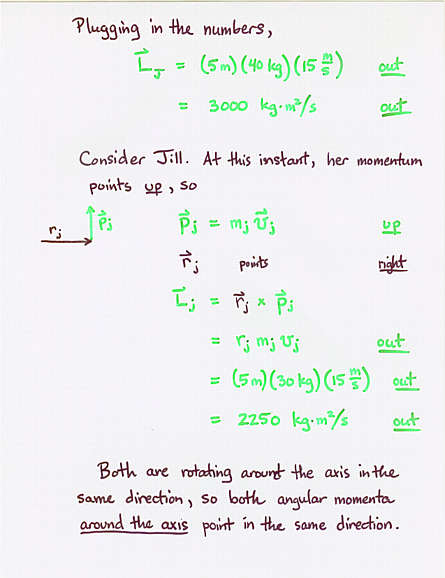 Plugging in the numbers,
L⃗_J = (5m)(40 kg)(15 m/s) out
= 3000 kg·m²/s out
Consider Jill. At this instant, her momentum
points up, so
r_j p⃗_j p⃗_j = m_j v⃗_j up
r⃗_j points right
L⃗_j = r⃗_j × p⃗_j
= r_j m_j v_j out
= (5m)(30 kg)(15 m/s) out
= 2250 kg·m²/s out
Both are rotating around the axis in the
same direction, so both angular momenta
around the axis point in the same direction.